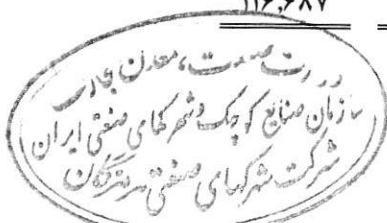 ۱۱۶,۶۸۷
وزارت صنعت، معدن تجارت
سازمان صنایع کوچک و شهرکهای صنعتی ایران
شرکت شهرکهای صنعتی هرمزگان